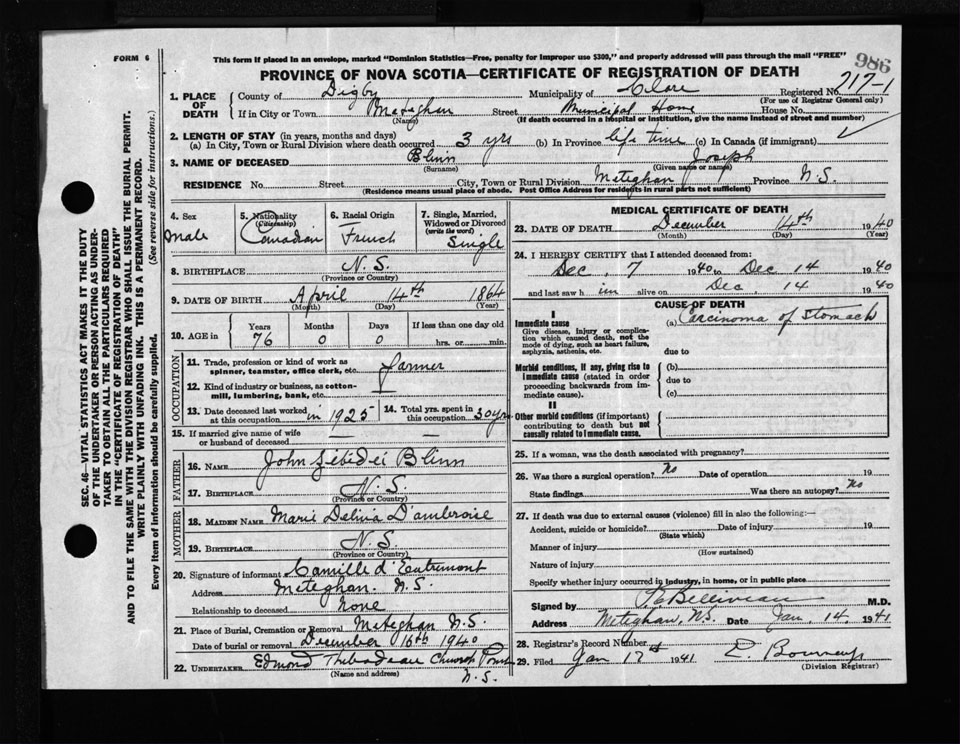 FORM 6
This form if placed in an envelope, marked "Dominion Statistics—Free, penalty for improper use $300," and properly addressed will pass through the mail "FREE"
986
PROVINCE OF NOVA SCOTIA—CERTIFICATE OF REGISTRATION OF DEATH
717-1
1. PLACE OF DEATH
County of Digby Municipality of Clare Registered No.
(For use of Registrar General only)
If in City or Town Meteghan Street Municipal Home House No.
(Name) (If death occurred in a hospital or institution, give the name instead of street and number)
2. LENGTH OF STAY (in years, months and days)
(a) In City, Town or Rural Division where death occurred 3 yrs (b) In Province life time (c) In Canada (if immigrant)
3. NAME OF DECEASED Blinn Joseph
(Surname) (Given name or names)
RESIDENCE No. Street City, Town or Rural Division Meteghan Province N.S.
(Residence means usual place of abode. Post Office Address for residents in rural parts not sufficient)
SEC. 46—VITAL STATISTICS ACT MAKES IT THE DUTY
OF THE UNDERTAKER OR PERSON ACTING AS UNDER-
TAKER TO OBTAIN ALL THE PARTICULARS REQUIRED
IN THE "CERTIFICATE OF REGISTRATION OF DEATH"
AND TO FILE THE SAME WITH THE DIVISION REGISTRAR WHO SHALL ISSUE THE BURIAL PERMIT.
WRITE PLAINLY WITH UNFADING INK. THIS IS A PERMANENT RECORD.
Every item of information should be carefully supplied. (See reverse side for instructions.)
4. Sex
male
5. Nationality
(Citizenship)
Canadian
6. Racial Origin
French
7. Single, Married,
Widowed or Divorced
(write the word)
Single
8. BIRTHPLACE N.S.
(Province or Country)
9. DATE OF BIRTH April 14th 1864
(Month) (Day) (Year)
10. AGE in
Years Months Days If less than one day old
76 0 0 hrs. or min.
OCCUPATION
11. Trade, profession or kind of work as
spinner, teamster, office clerk, etc. farmer
12. Kind of industry or business, as cotton-
mill, lumbering, bank, etc.
13. Date deceased last worked
at this occupation in 1925
14. Total yrs. spent in
this occupation 50 yrs
15. If married give name of wife
or husband of deceased — —
FATHER
16. NAME John Zebidei Blinn
17. BIRTHPLACE N.S.
(Province or Country)
MOTHER
18. MAIDEN NAME Marie Delina D'ambroise
19. BIRTHPLACE N.S.
(Province or Country)
20. Signature of informant Camille d'Entremont
Address Meteghan. N.S.
Relationship to deceased None
21. Place of Burial, Cremation or Removal Meteghan N.S.
Date of burial or removal December 16th 1940
22. UNDERTAKER Edmond Thibodeau Church Point
(Name and address) N.S.
MEDICAL CERTIFICATE OF DEATH
23. DATE OF DEATH December 14th 1940
(Month) (Day) (Year)
24. I HEREBY CERTIFY that I attended deceased from:
Dec. 7 1940 to Dec 14 1940
and last saw h im alive on Dec. 14 1940
CAUSE OF DEATH
I
Immediate cause (a) Carcinoma of Stomach
Give disease, injury or complica-
tion which caused death, not the
mode of dying, such as heart failure,
asphyxia, asthenia, etc.
due to
Morbid conditions, if any, giving rise to
immediate cause (stated in order
proceeding backwards from im-
mediate cause).
(b)
due to
(c)
II
Other morbid conditions (if important)
contributing to death but not
causally related to immediate cause.
25. If a woman, was the death associated with pregnancy?
26. Was there a surgical operation? No Date of operation 19
State findings Was there an autopsy? No
27. If death was due to external causes (violence) fill in also the following:—
Accident, suicide or homicide? Date of injury 19
(State which)
Manner of injury
(How sustained)
Nature of injury
Specify whether injury occurred in industry, in home, or in public place
Signed by Belliveau M.D.
Address Meteghan, N.S. Date Jan. 14 1941
28. Registrar's Record Number
29. Filed Jan 1941
(Division Registrar)